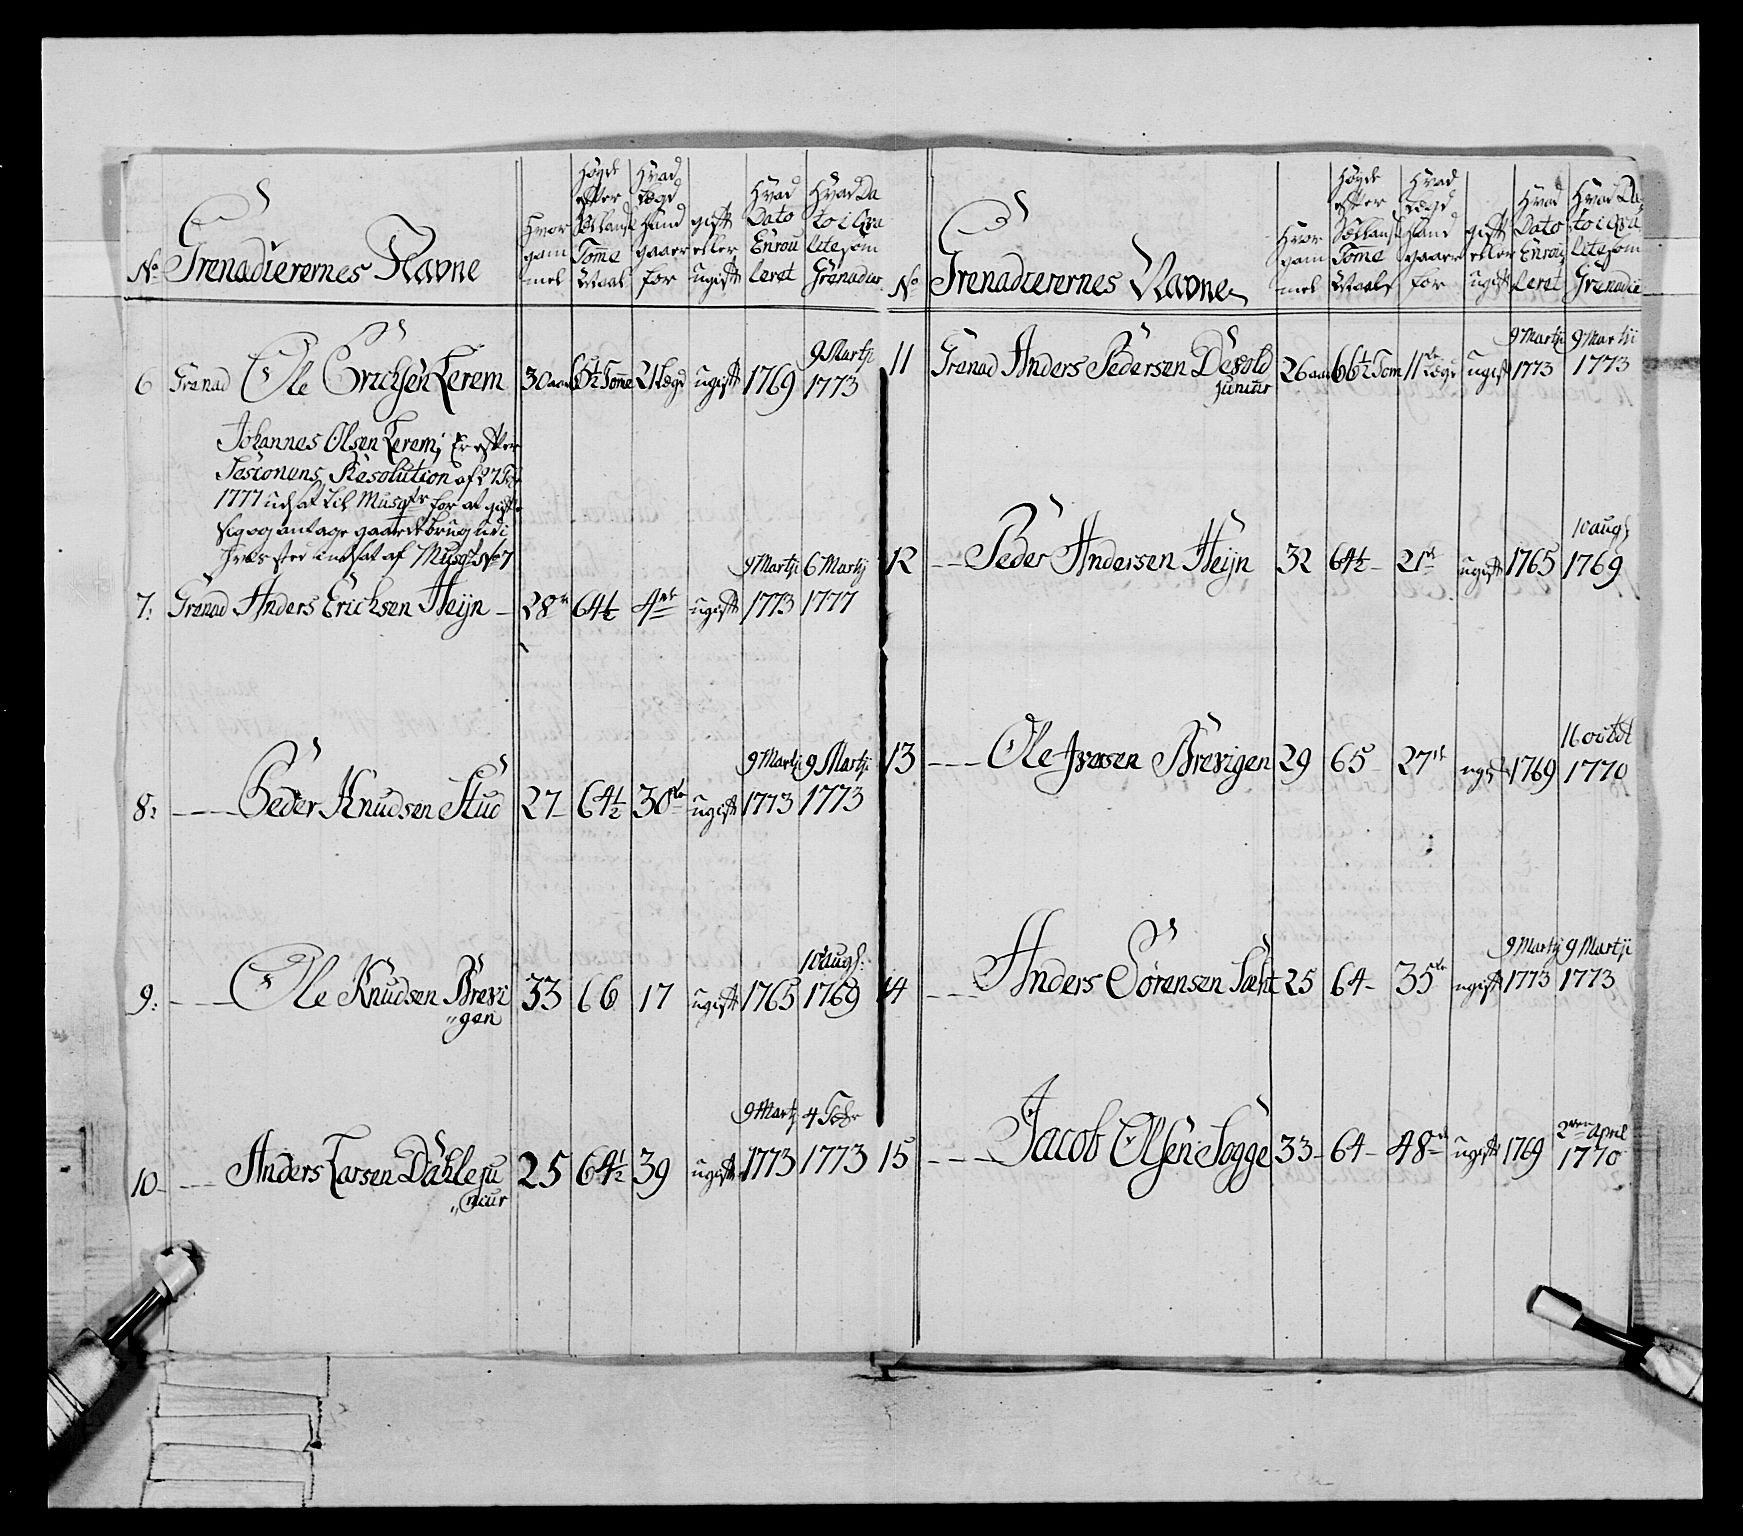 No Grenadierernes Navne
Hvor gam mel
Høyde efter Sællansk Tomme Maal
Hvad Lægd Hand gaaer for
gift eller ugift
Hvad Dato Enrou leret
Hvad Da to i Qva lite som Grenadier
6 Grenad Ole Erichsen Lerem 30 aar 65½ Tomme 21 Lægd ugift 1769 9 Martji 1773
Johannes Olsen Lerem; Er efter
Sesionens Resolution af 27 Feb
1777 udsat til Musqtr for at gifte
sig og antage gaardebrug udi
hvis sted indsat af Musqt No 7
7: Grenad Anders Ericksen Heijn 28 64½ 4de ugift 9 Martji 1773 6 Martij 1777
8: Peder Knudsen Stud 27 64½ 30te ugift 9 Martji 1773 9 Martji 1773
9: Ole Knudsen Brevi 33 66 17 ugift 1765 10 Aug: 1769
"gen
10 Anders Larsen Dahle ju 25 64½ 39 ugift 9 Martj 1773 4 Febr 1773
"niur
No Grenadierernes Navne
Hvor gam mel
Høyde efter Sællansk Tomme Maals
Hvad Lægd Hand gaaer for
gift eller ugift
Hvad Dato Enrou leret
Hvad Da to i Qva lite som Grenadie
11 Grenad Anders Pedersen Devold 26 aar 66½ Tom 11te Lægd ugift 9 Martji 1773 9 Martji 1773
juniur
12 Peder Andersen Heijn 32 64½ 21de ugift 1765 10 aug 1769
13 Ole Iversen Brevigen 29 65 27de ugift 1769 16 octbr 1770
14 Anders Sørensen Sæht 25 64 35te ugift 9 Martij 1773 9 Martji 1773
15 Jacob Olsen Sogge 33 64 48de ugift 1769 2den April 1770